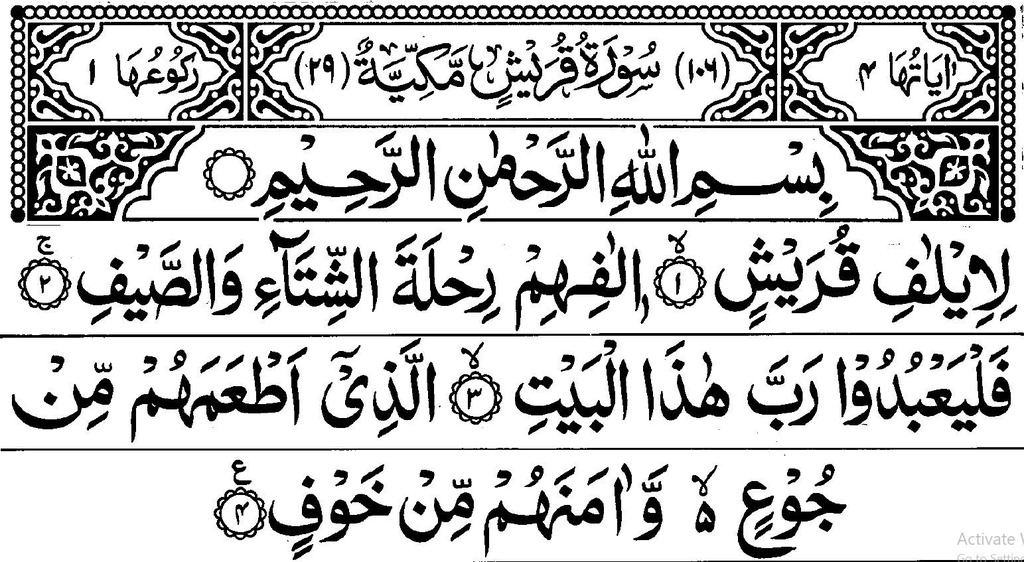 اٰيَاتُهَا ۴ (۱۰۶) سُوْرَةُ قُرَيْشٍ مَّكِّيَّةٌ (۲۹) رُكُوْعُهَا ۱
بِسْمِ اللّٰهِ الرَّحْمٰنِ الرَّحِيْمِ
لِاِيْلٰفِ قُرَيْشٍ ۙ‏﴿۱﴾ اٖلٰفِهِمْ رِحْلَةَ الشِّتَآءِ وَالصَّيْفِ ۚ‏﴿۲﴾
فَلْيَعْبُدُوْا رَبَّ هٰذَا الْبَيْتِ ۙ‏﴿۳﴾ الَّذِىْٓ اَطْعَمَهُمْ مِّنْ
جُوْعٍ ۵ۙ وَّاٰمَنَهُمْ مِّنْ خَوْفٍ ﴿۴﴾ ع
Activate W
Go to Setting